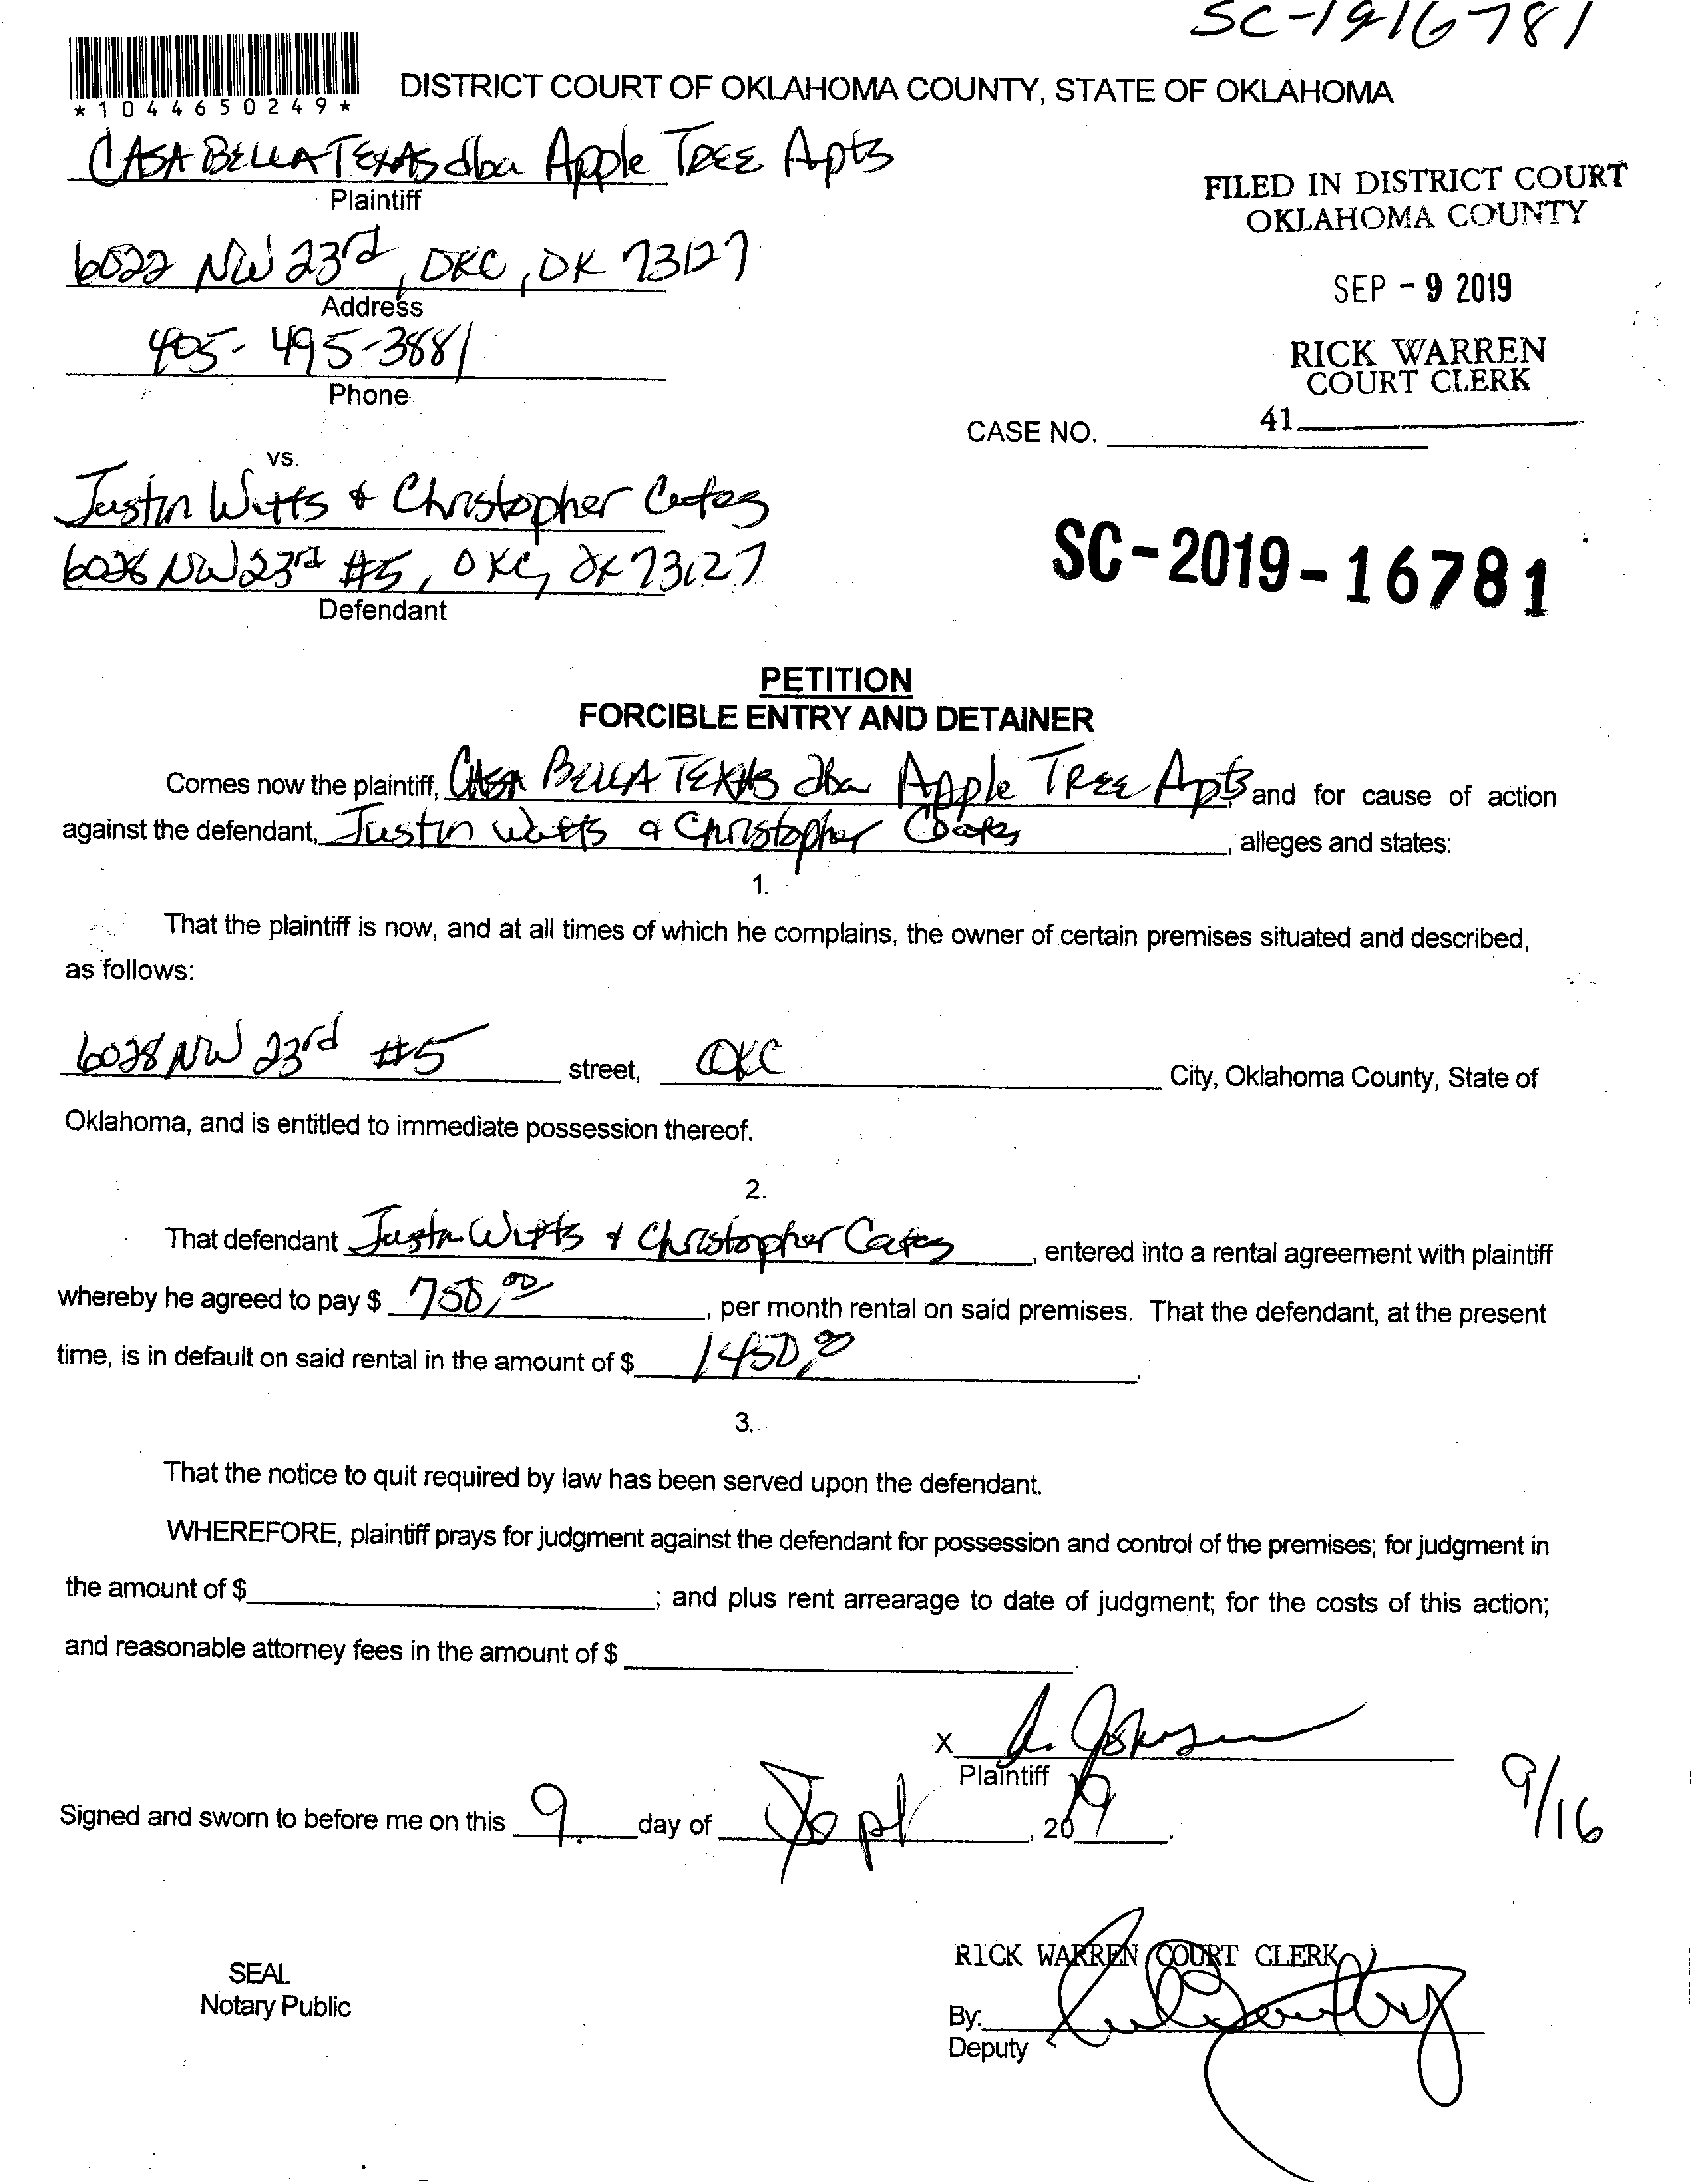 SC-1916781
*1044650249*
DISTRICT COURT OF OKLAHOMA COUNTY, STATE OF OKLAHOMA
CASA BELLA TEXAS dba Apple TREE Apts
Plaintiff
FILED IN DISTRICT COURT
OKLAHOMA COUNTY
6022 NW 23rd, OKC, OK 73127
Address
SEP - 9 2019
405-495-3881
Phone
RICK WARREN
COURT CLERK
41
CASE NO.
vs.
Justin Witts & Christopher Cates
6028 NW 23rd #5, OKC, OK 73127
Defendant
SC-2019-16781
PETITION
FORCIBLE ENTRY AND DETAINER
Comes now the plaintiff, CASA BELLA TEXAS dba Apple TREE Apts and for cause of action
against the defendant, Justin Witts & Christopher Cates, alleges and states:
1.
That the plaintiff is now, and at all times of which he complains, the owner of certain premises situated and described,
as follows:
6028 NW 23rd #5 street, OKC City, Oklahoma County, State of
Oklahoma, and is entitled to immediate possession thereof.
2.
That defendant Justin Witts & Christopher Cates, entered into a rental agreement with plaintiff
whereby he agreed to pay $ , per month rental on said premises. That the defendant, at the present
time, is in default on said rental in the amount of $ 1450.00.
3.
That the notice to quit required by law has been served upon the defendant.
WHEREFORE, plaintiff prays for judgment against the defendant for possession and control of the premises; for judgment in
the amount of $ ; and plus rent arrearage to date of judgment; for the costs of this action;
and reasonable attorney fees in the amount of $
x A. Johnson
Plaintiff
Signed and sworn to before me on this 9 day of Sept, 2019.
9/16
RICK WARREN COURT CLERK
SEAL
Notary Public
By:
Deputy